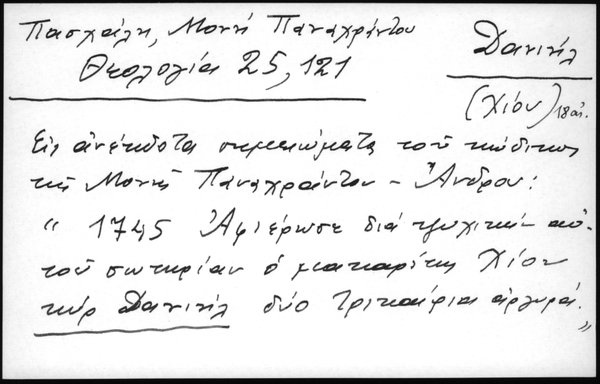 Πασχάλη, Μονή Παναχράντου
Δανιήλ
Θεολογία 25, 121
(Χίου) 18 αἰ.
Εἰς ἀνέκδοτα σημειώματα τοῦ κώδικος
τῆς Μονῆς Παναχράντου - Ἄνδρου:
“ 1745 Ἀφιέρωσε διά ψυχικήν αὐ-
τοῦ σωτηρίαν ὁ μακαρίτης Χίου
κύρ Δανιήλ δύο τρικαίρια ἀργυρά.”